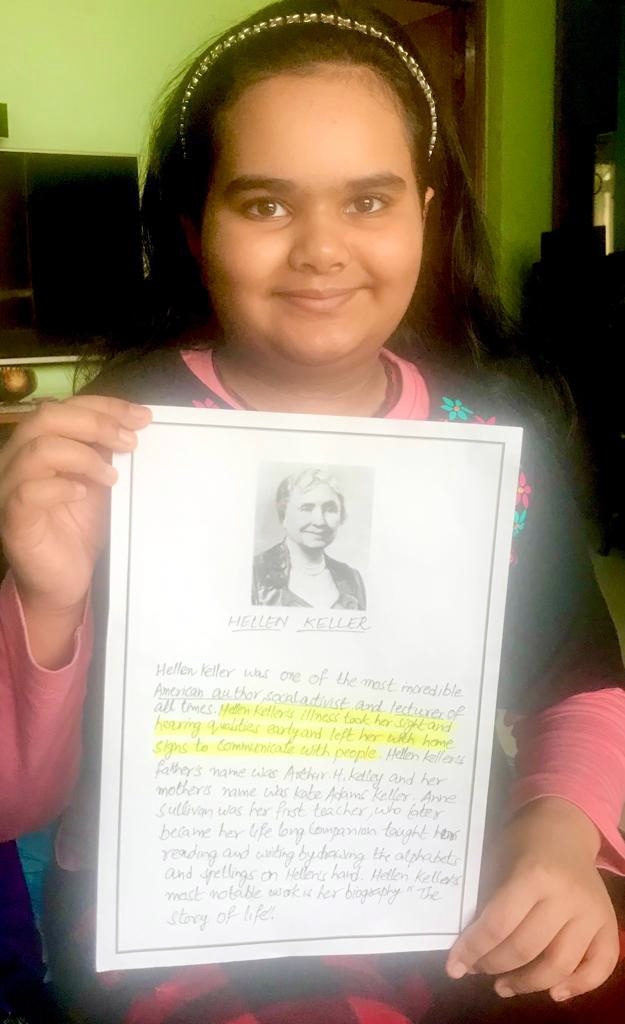 HELLEN KELLER
Hellen Keller was one of the most incredible
American author, social activist and lecturer of
all times. Helen Keller's illness took her sight and
hearing qualities early and left her with home
signs to communicate with people. Hellen Keller's
father's name was Arthur H. Kelley and her
mother's name was Kate Adams Keller. Anne
Sullivan was her first teacher, who later
became her life long companion taught her
reading and writing by drawing the alphabets
and spellings on Hellen's hand. Hellen Keller's
most notable work is her biography "The
story of life".